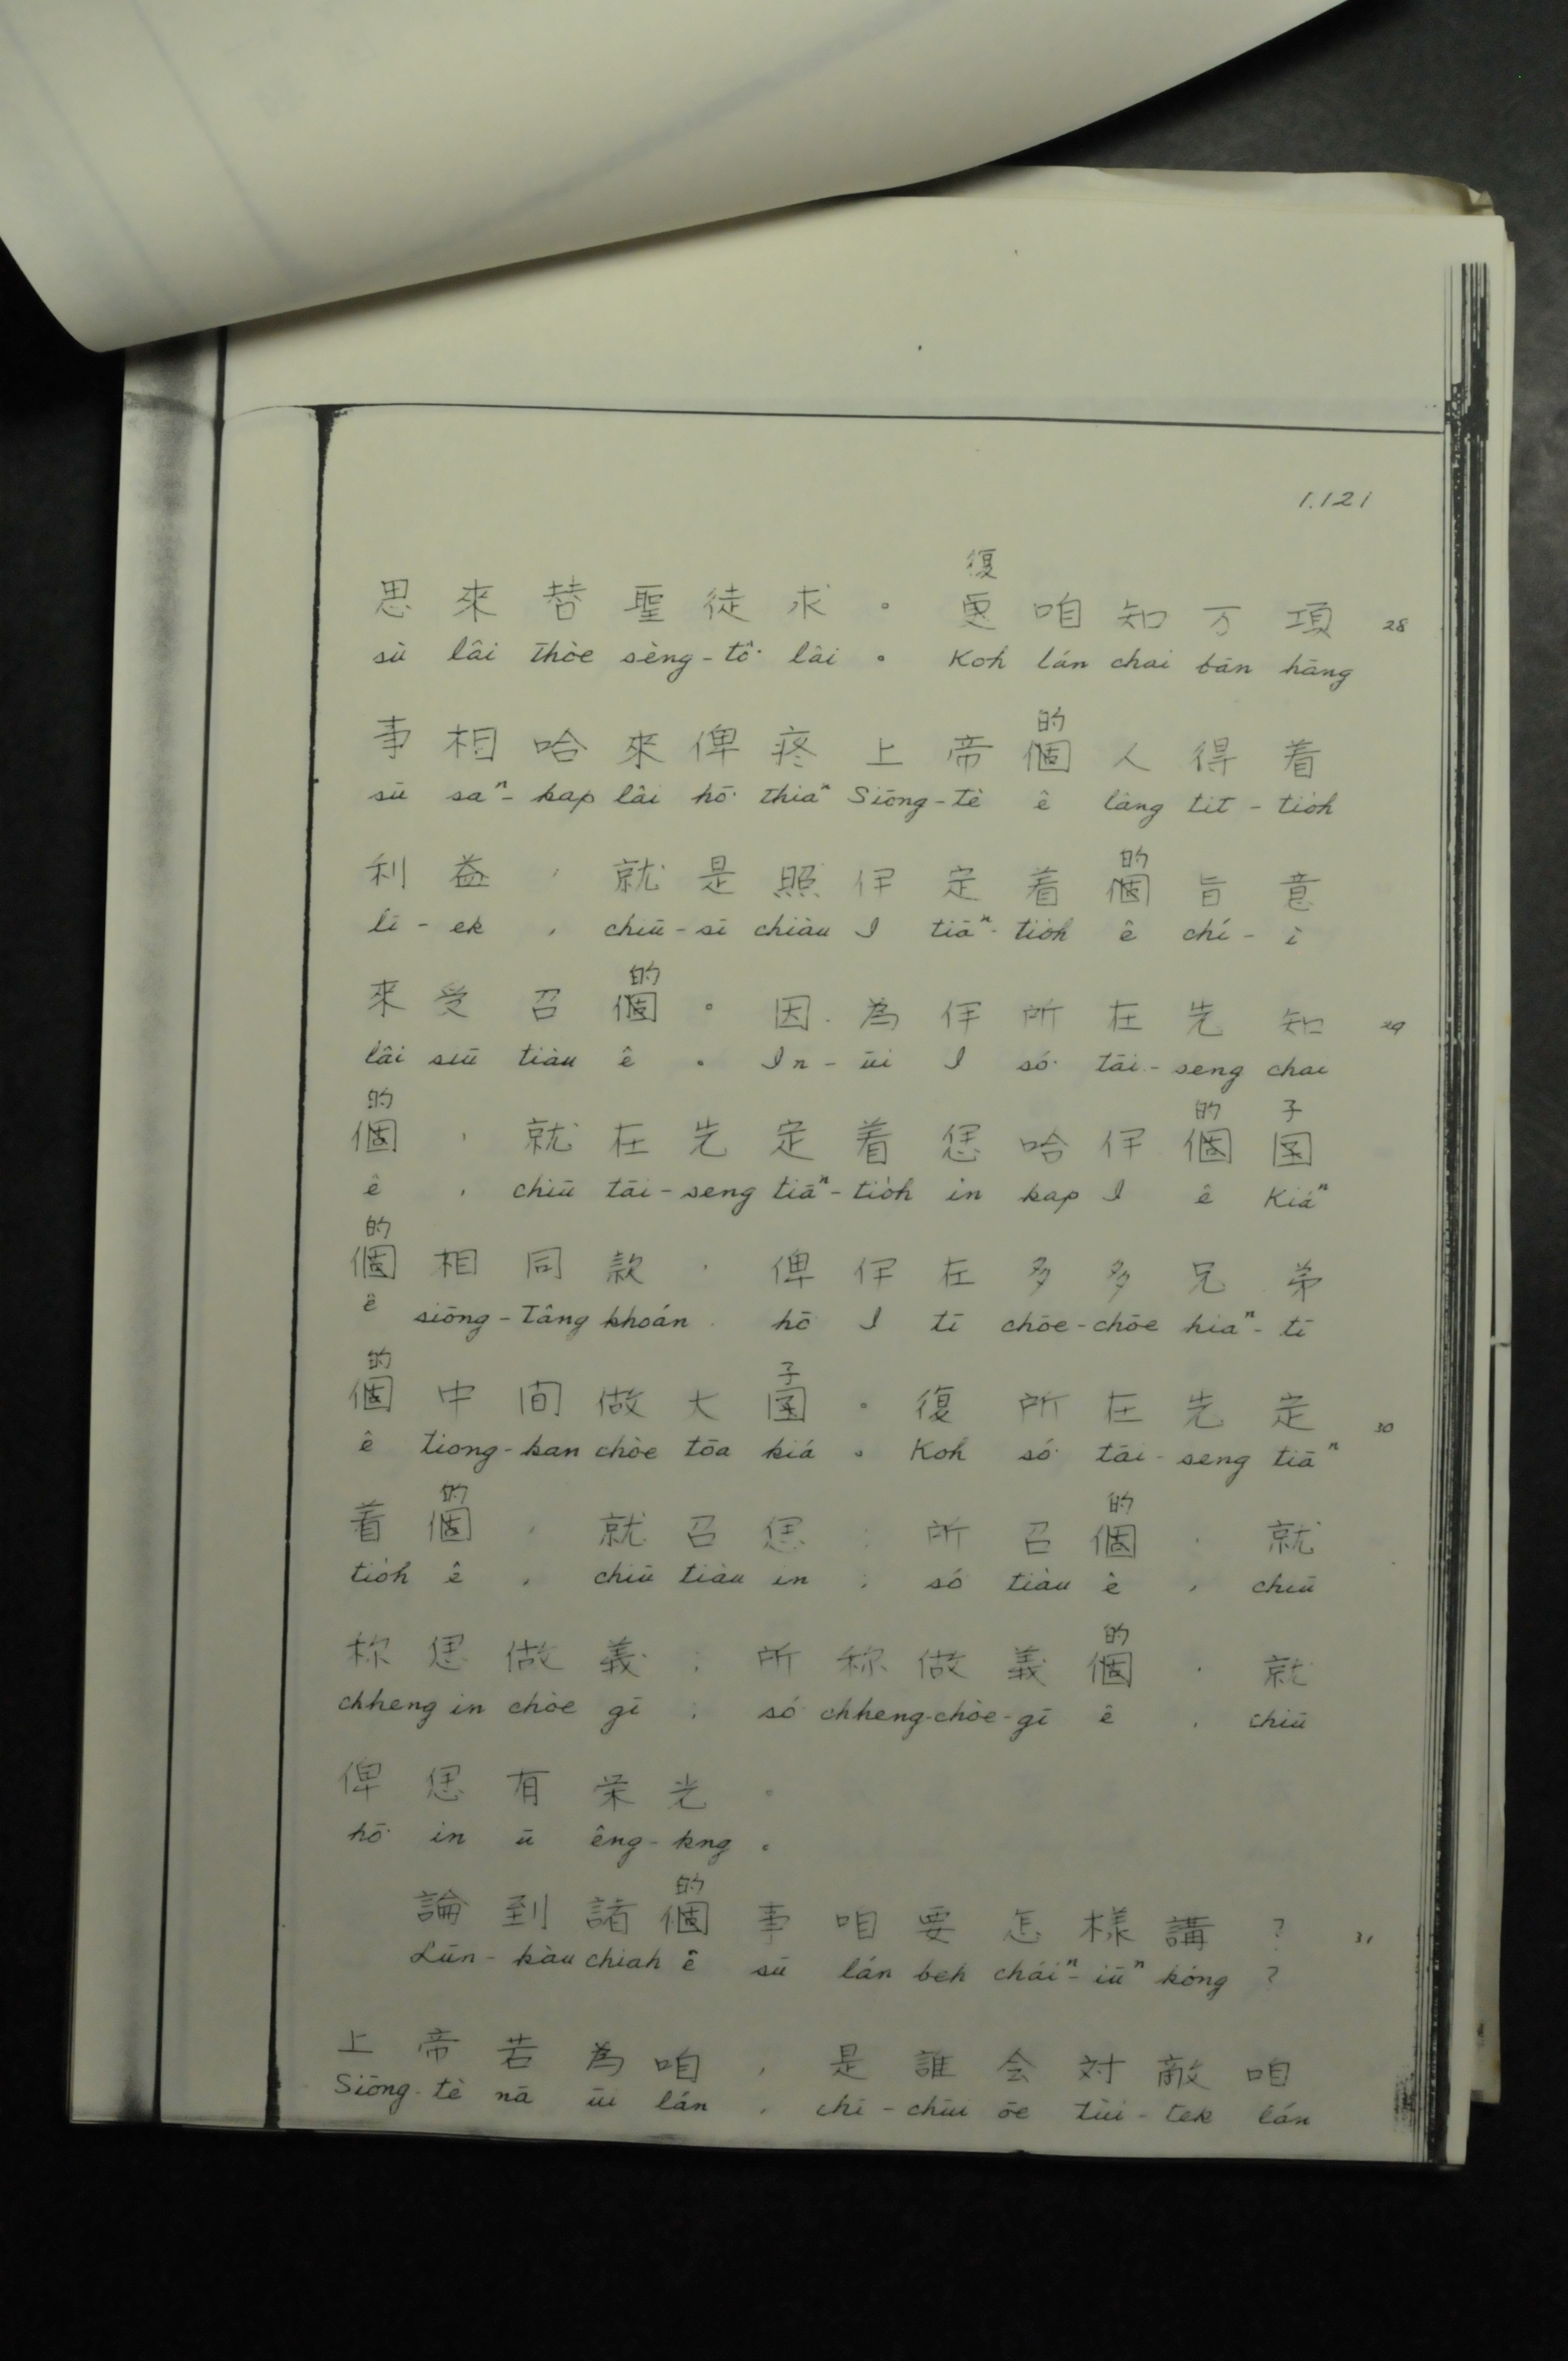 1.121
復
思來替聖徒求。更咱知万項 28
sù lâi thòe sèng-tô͘ lâi。Koh lán chai bān hāng
的
事相哈來俾疼上帝個人得着
sū saⁿ-kap lâi hō͘ thiàⁿ Siōng-tè ê lâng tit-tio̍h
的
利益，就是照伊定着個旨意
lī-ek, chiū-sī chiàu I tiāⁿ-tio̍h ê chí-ì
的
來受召個。因為伊所在先知 29
lâi siū tiàu ê。In-ūi I só͘ tāi-seng chai
的 的 子
個，就在先定着𪜶哈伊個囝
ê, chiū tāi-seng tiāⁿ-tio̍h in kap I ê Kiáⁿ
的
個相同款，俾伊在多多兄弟
ê siōng-tâng khoán, hō͘ I tī chōe-chōe hiaⁿ-tī
的 子
個中间做大囝。復所在先定 30
ê tiong-kan chòe tōa kiá。Koh só͘ tāi-seng tiāⁿ
的 的
着個，就召𪜶；所召個，就
tio̍h ê, chiū tiàu in; só͘ tiàu ê, chiū
的
称𪜶做義；所称做義個，就
chheng in chòe gī; só͘ chheng-chòe-gī ê, chiū
俾𪜶有栄光。
hō͘ in ū êng-kng。
的
論到諸個事咱要怎樣講？ 31
Lūn-kàu chiah ê sū lán beh cháiⁿ-iūⁿ kóng?
上帝若為咱，是誰会対敵咱
Siōng-tè nā ūi lán, chī-chūi ōe tùi-tek lán